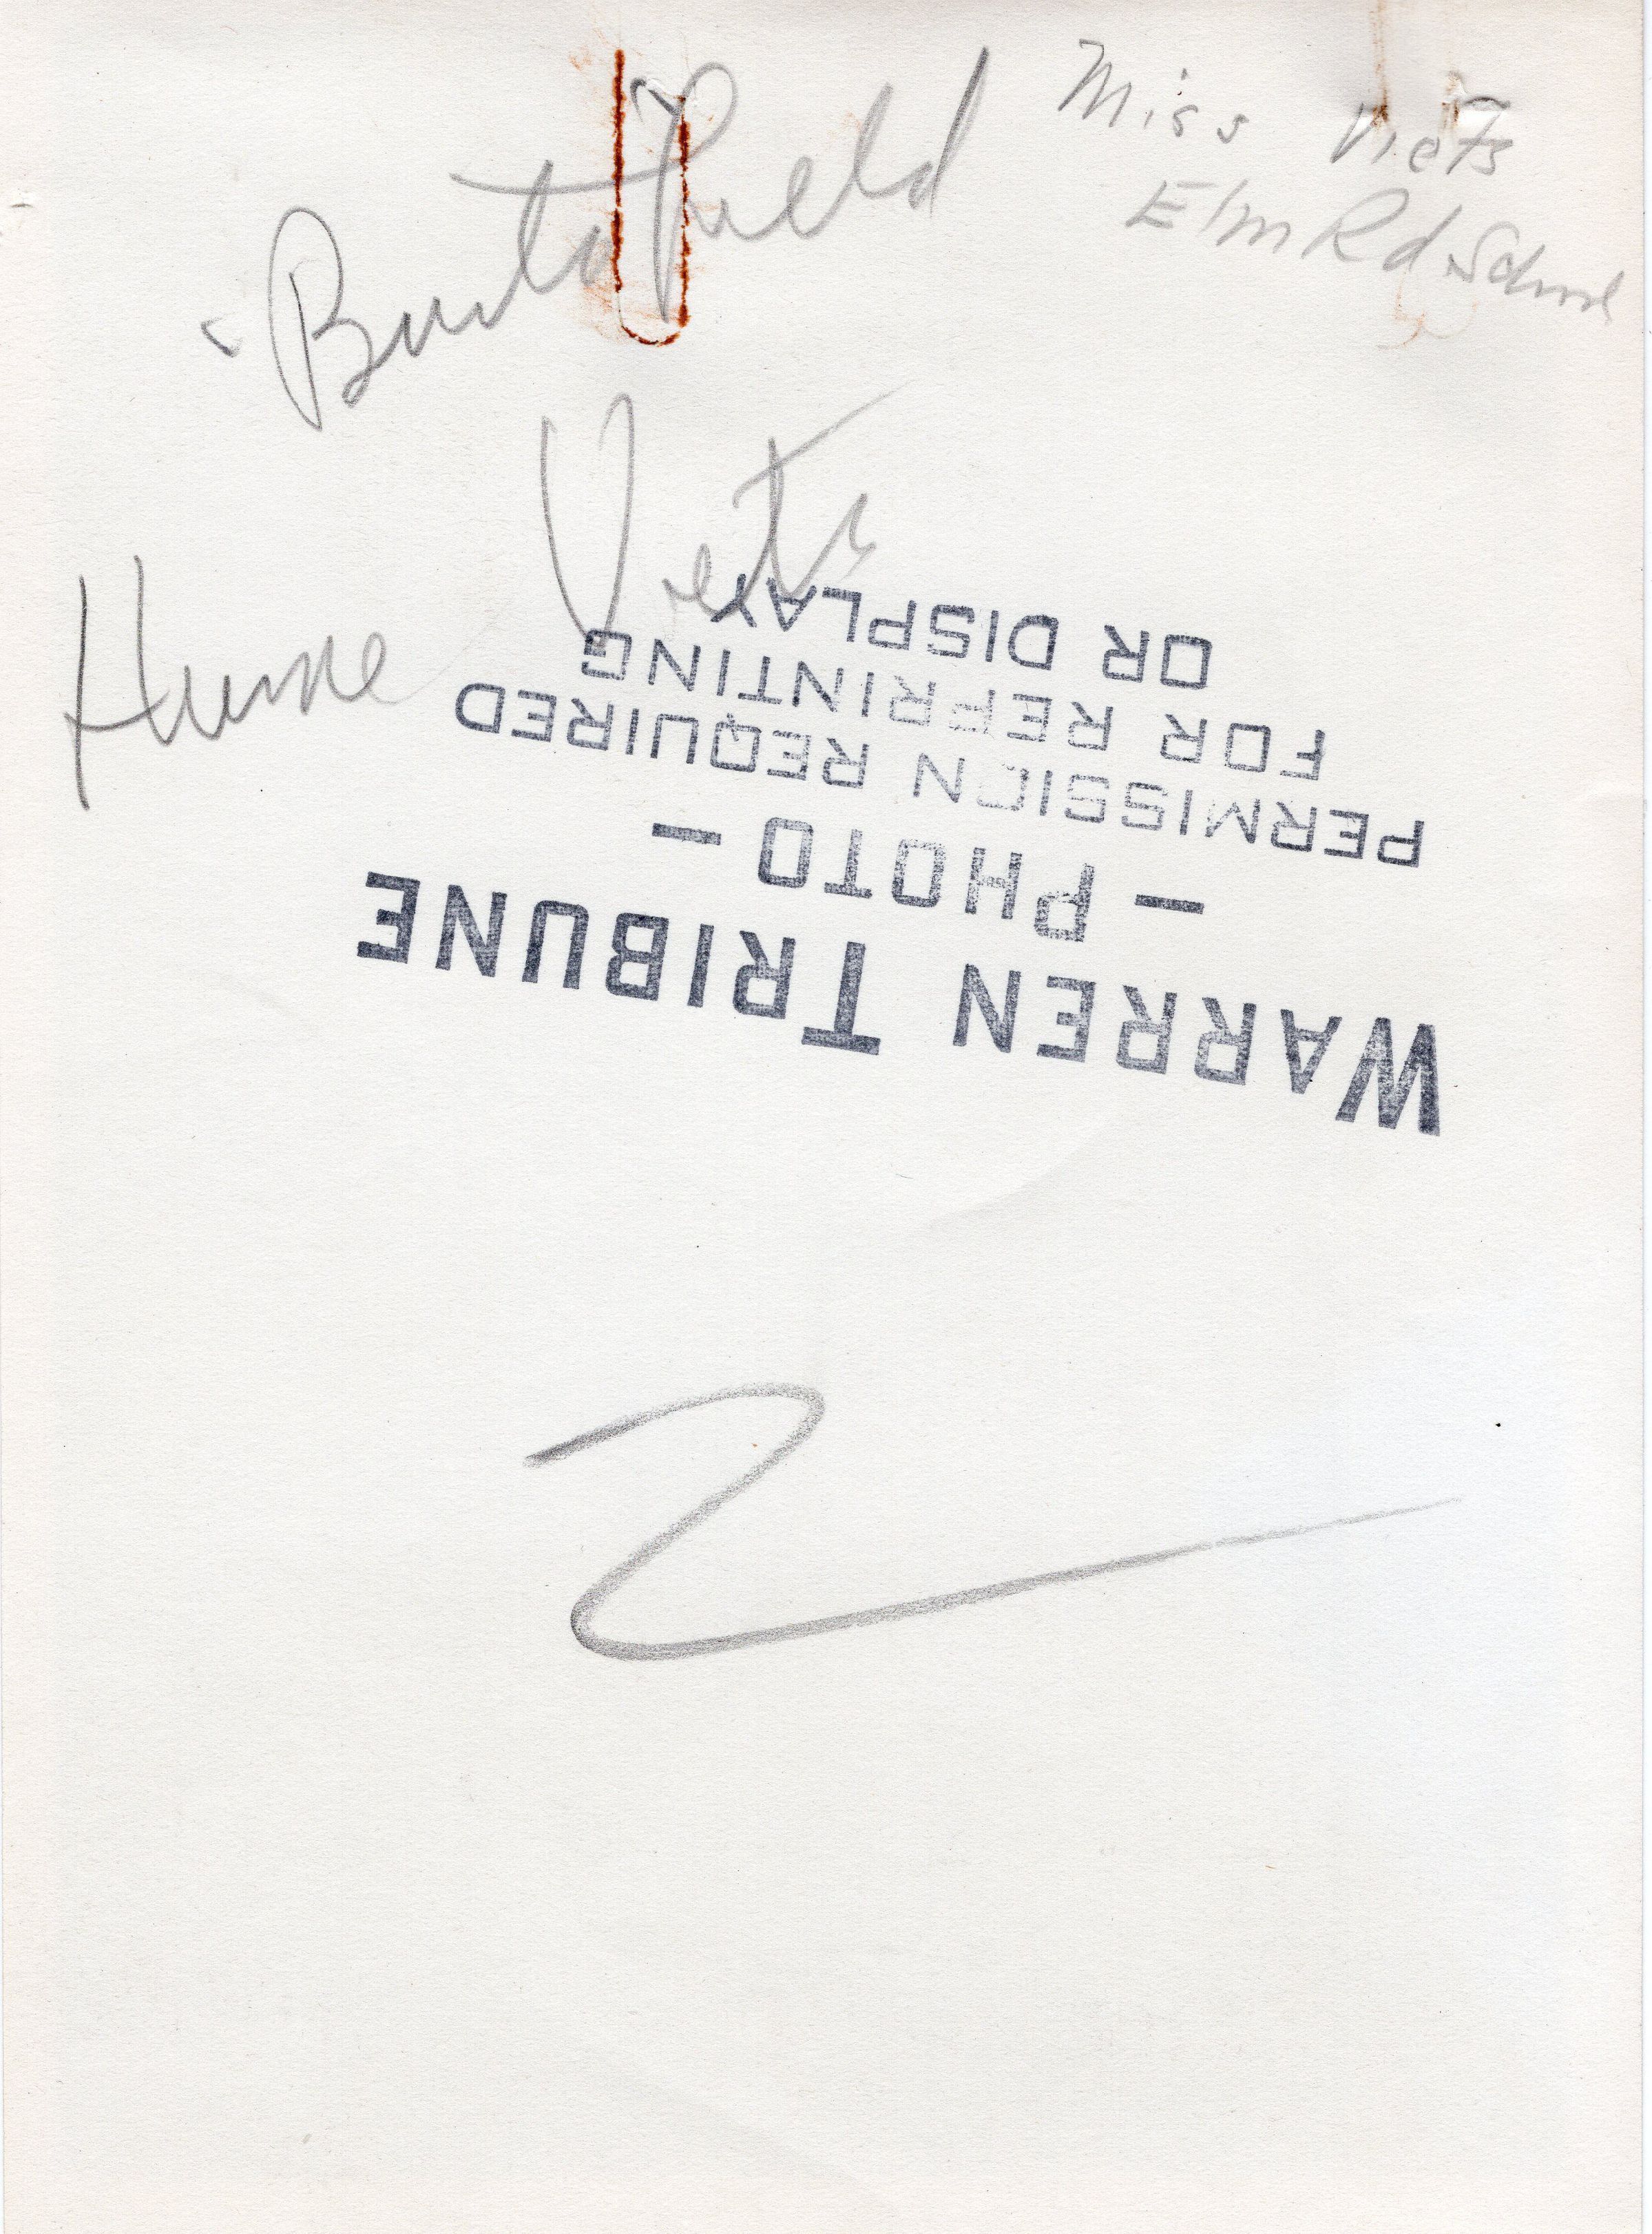 Miss Viets
Elm Rd School
WARREN TRIBUNE
— PHOTO —
PERMISSION REQUIRED
FOR REPRINTING
OR DISPLAY
2